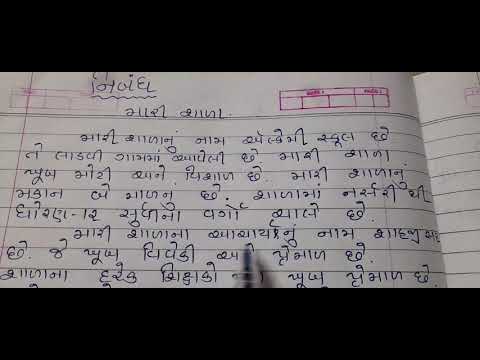 નિબંધ
મારી શાળા.
મારી શાળાનું નામ એલ્કેમી સ્કૂલ છે
તે લાડવી ગામમાં આવેલી છે. મારી શાળા
ખૂબ મોટી અને વિશાળ છે. મારી શાળાનું
મકાન બે માળનું છે. શાળામાં નર્સરી થી
ધોરણ-૧૨ સુધીના વર્ગો ચાલે છે.
મારી શાળાના આચાર્યનું નામ શાહજી સર
છે. જે ખૂબ વિવેકી અને પ્રેમાળ છે.
શાળાના દરેક શિક્ષકો ખૂબ પ્રેમાળ છે.